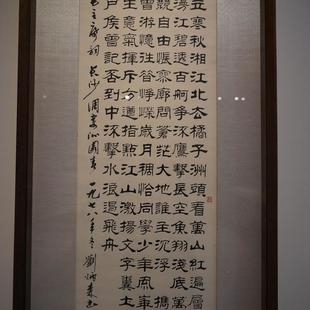 立寒秋湘江北去橘子洲頭看萬山紅遍層
漫江碧透百舸爭流鷹擊長空魚翔淺底萬
競自由悵寥廓問蒼茫大地誰主沉浮攜
曾游憶往昔崢嶸歲月稠恰同學少年風華
生意氣揮斥方遒指點江山激揚文字糞土
戶侯曾記否到中流擊水浪遏飛舟
毛主席詞長沙調寄沁園春一九七八年冬劉炳森書